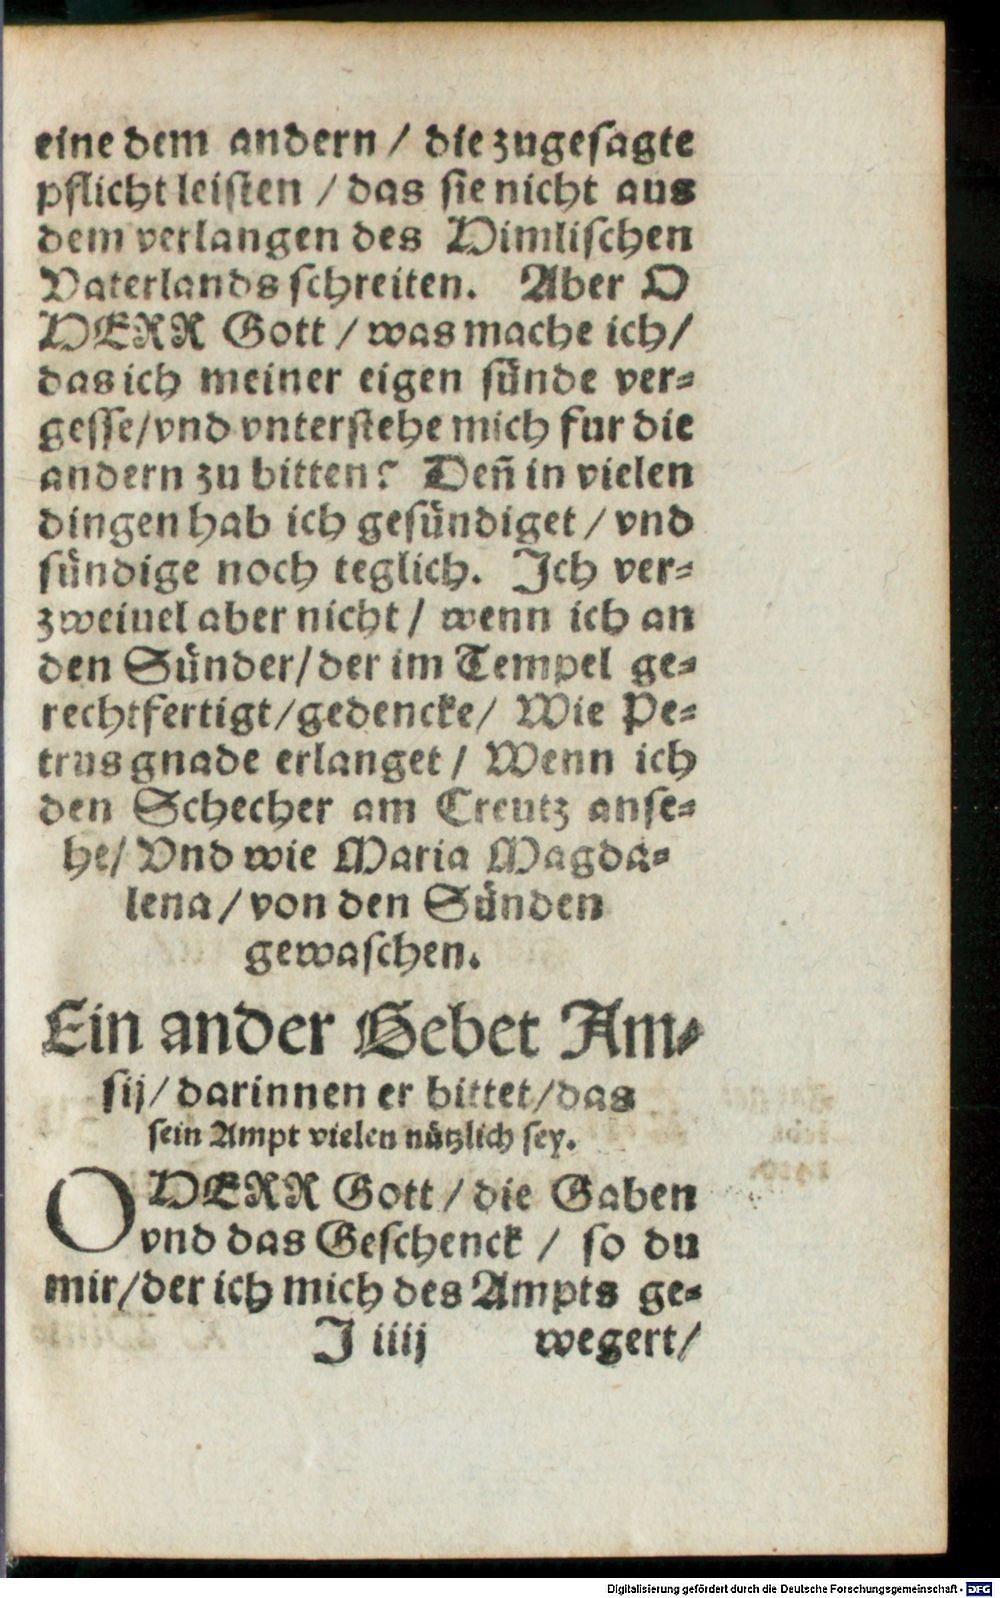 eine dem andern / die zugesagte
pflicht leisten / das sie nicht aus
dem verlangen des Himlischen
Vaterlands schreiten. Aber O
HERR Gott / was mache ich /
das ich meiner eigen sünde ver-
gesse / vnd vnterstehe mich fur die
andern zu bitten? Deñ in vielen
dingen hab ich gesündiget / vnd
sündige noch teglich. Ich ver-
zweiuel aber nicht / wenn ich an
den Sünder / der im Tempel ge-
rechtfertigt / gedencke / Wie Pe-
trus gnade erlanget / Wenn ich
den Schecher am Creutz anse-
he / Vnd wie Maria Magda-
lena / von den Sünden
gewaschen.
Ein ander Gebet Am-
sij / darinnen er bittet / das
sein Ampt vielen nützlich sey.
O HERR Gott / die Gaben
vnd das Geschenck / so du
mir / der ich mich des Ampts ge-
J iiij wegert /
Digitalisierung gefördert durch die Deutsche Forschungsgemeinschaft - DFG